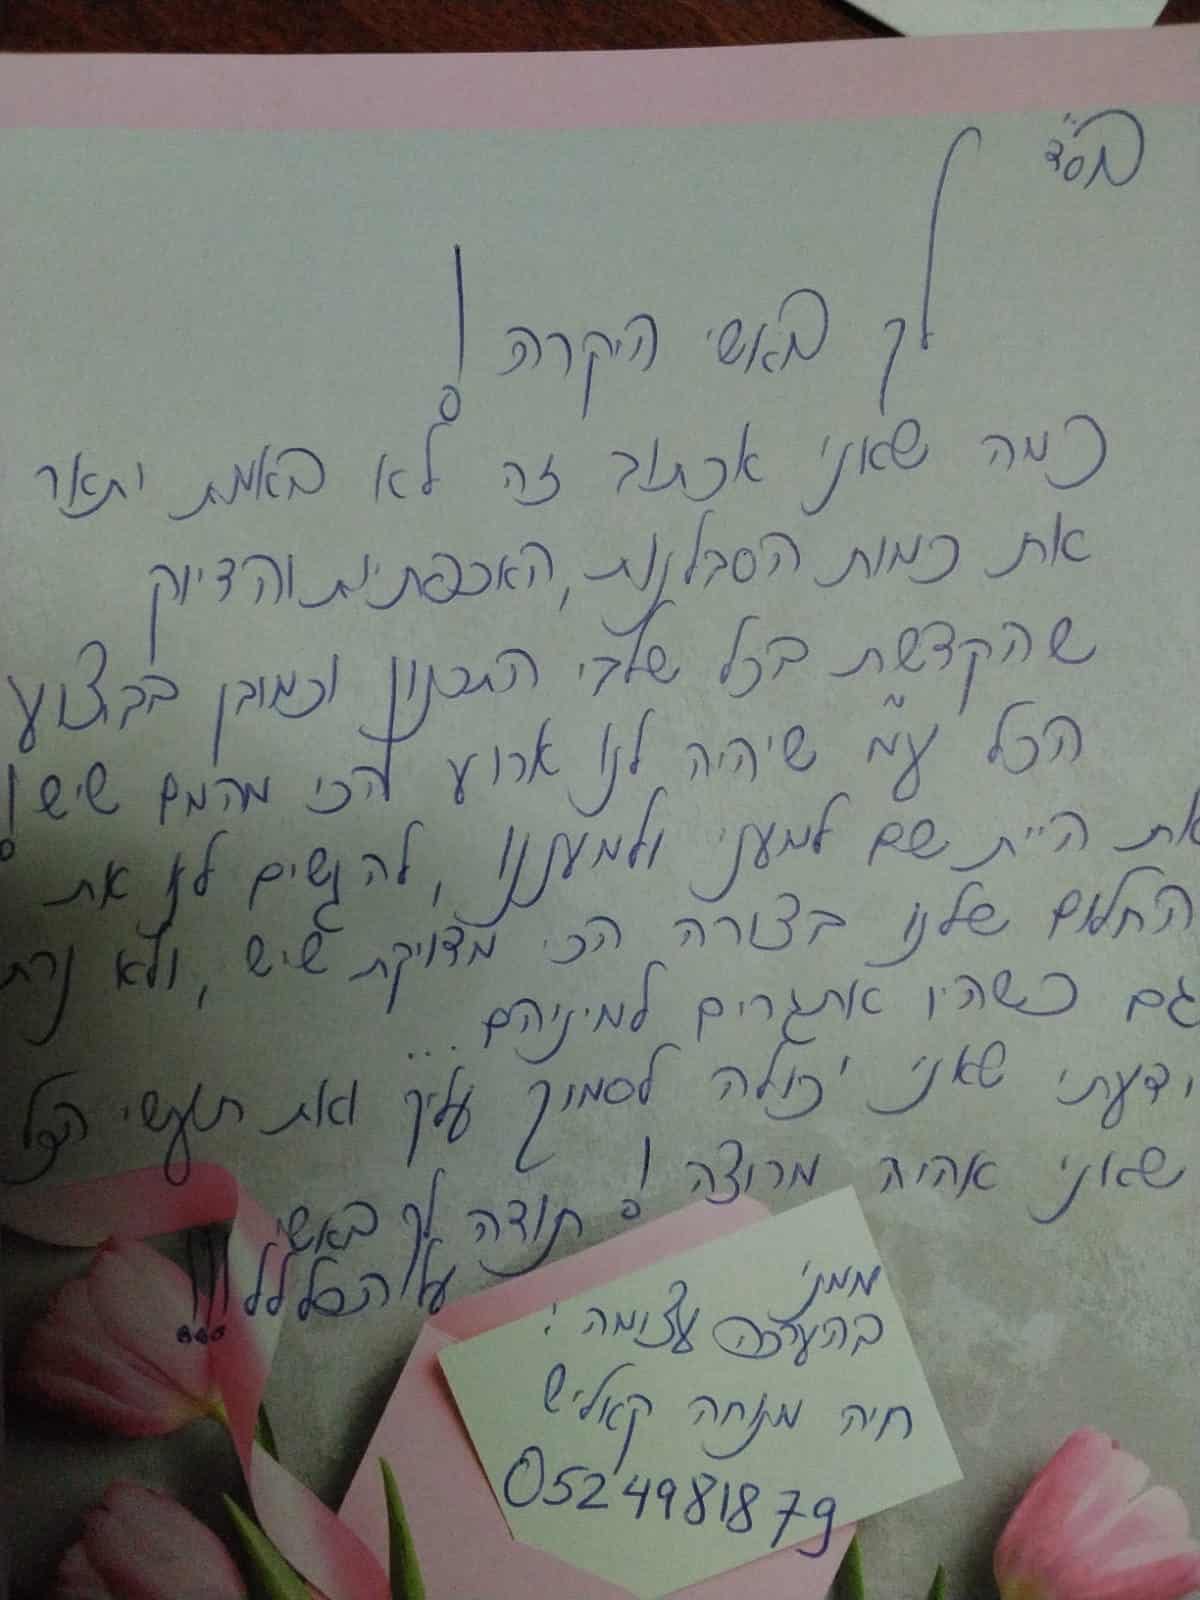 בס"ד
לך באשי היקרה!
כמה שאני אכתוב זה לא באמת יתאר
את כמות הסבלנות, האכפתיות והדיוק
שהקדשת בכל שלבי התכנון וכמובן בביצוע
הכל ע"מ שיהיה לנו ארוע הכי מהמם שיש!
את היית שם למעני ולמעננו, להגשים לנו את
החלום שלנו בצורה הכי מדויקת שיש, ולא נרת
גם כשהיו אתגרים למיניהם...
ידעתי שאני יכולה לסמוך עליך ואת תעשי הכל
שאני אהיה מרוצה! תודה לך באשי
על הכללל!!!
ממני
בהערכה עצומה:
חיה מנוחה קאליש
0524981879